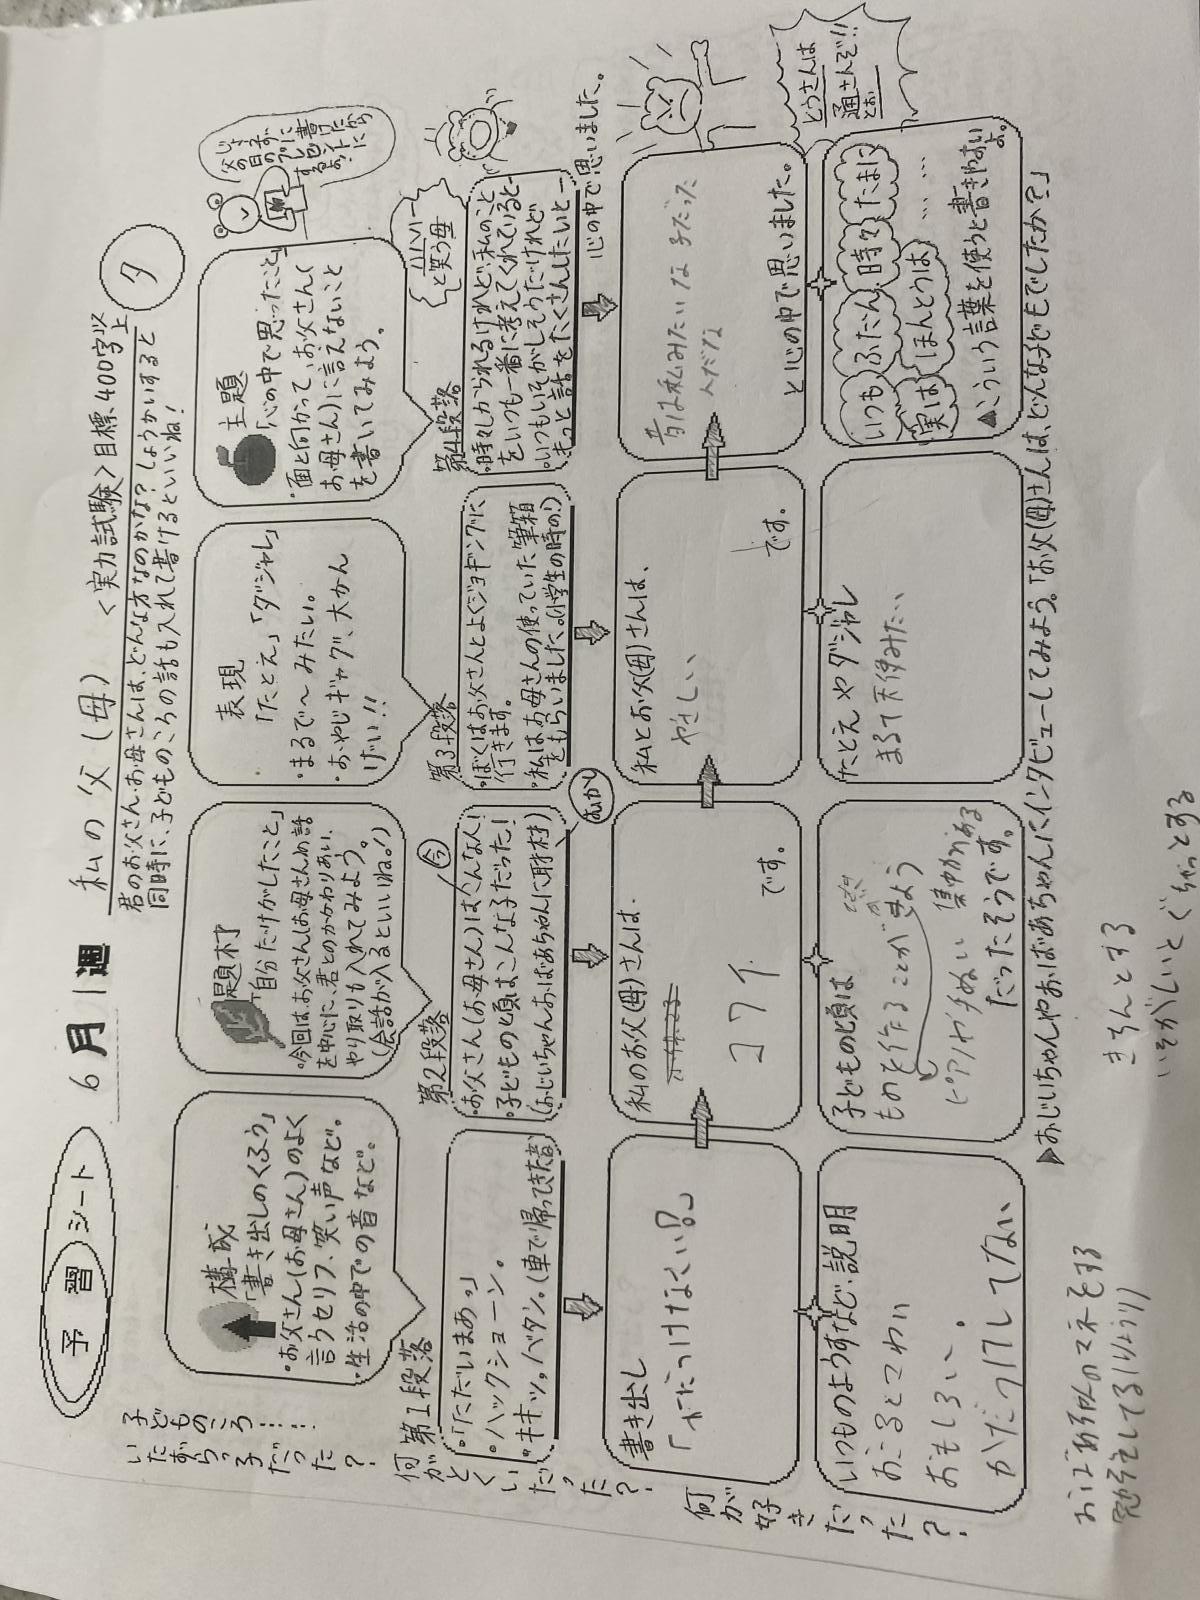 予習シート
6月1週
私の父(母)
<実力試験>目標400字以上
夕
君のお父さんお母さんは、どんな方なのかな?しょうかいすると
同時に、子どものころの話も入れて書けるといいね!
構成
「書き出しのくふう」
・お父さん(お母さん)のよく
言うセリフ、笑い声など。
・生活の中での音など。
題材
「自分だけがしたこと」
・今回はお父さん(お母さん)の話
を中心に、君とのかかわりあい、
やり取りも入れてみよう。
(会話が入るといいね。)
表現
「たとえ」「ダジャレ」
・まるで〜みたい。
・おやじギャグ、大かん
げい!!
主題
「心の中で思ったこと」
・面と向かって、お父さん(
お母さん)に言えないこと
を書いてみよう。
子どものころ……
いたずらっ子だった?
何がとくいだった?
何が好きだった?
第1段落
・「ただいまあっ」
・ハックショーン。
・キキーッ。バタン。(車で帰ってきた音)
第2段落
今
・お父さん(お母さん)はこんな人!
・子どもの頃はこんな子だった!
(おじいちゃんおばあちゃんに取材)
むかし
第3段落
・ぼくはお父さんとよくジョギングに
行きます。
・私はお母さんの使っていた筆箱
をもらいました。(小学生の時の!)
第4段落
ハハハー
と笑う母
・時々しかられるけれど、私のこと
をいつも一番に考えてくれていると―
・いつもいそがしそうだけれど
きっと話をたくさんしたいと―
心の中で思いました。
とうさんは
通さんぞ!!
とお
書き出し
「かたづけなさい!?」
私のお父(母)さんは、
コワイ
です。
私とお父(母)さんは、
やさしい
です。
昔は私みたいな子だった
人だな
と心の中で思いました。
いつものようすなど、説明
おこるとこわい
おもしろい、
かたづけしてない
子どもの頃は
ものを作ることが
ピアノや手ぬい
集中力がある
だったそうです。
たとえやダジャレ
まるで天使みたい
いつも ふだん 時々 たまに
実は ほんとうは ……
▲こういう言葉を使うと書きやすいよ。
▶おじいちゃんやおばあちゃんにインタビューしてみよう。「お父(母)さんは、どんな子どもでしたか?」
きちんとする
いそがしいとぐちゃっとする